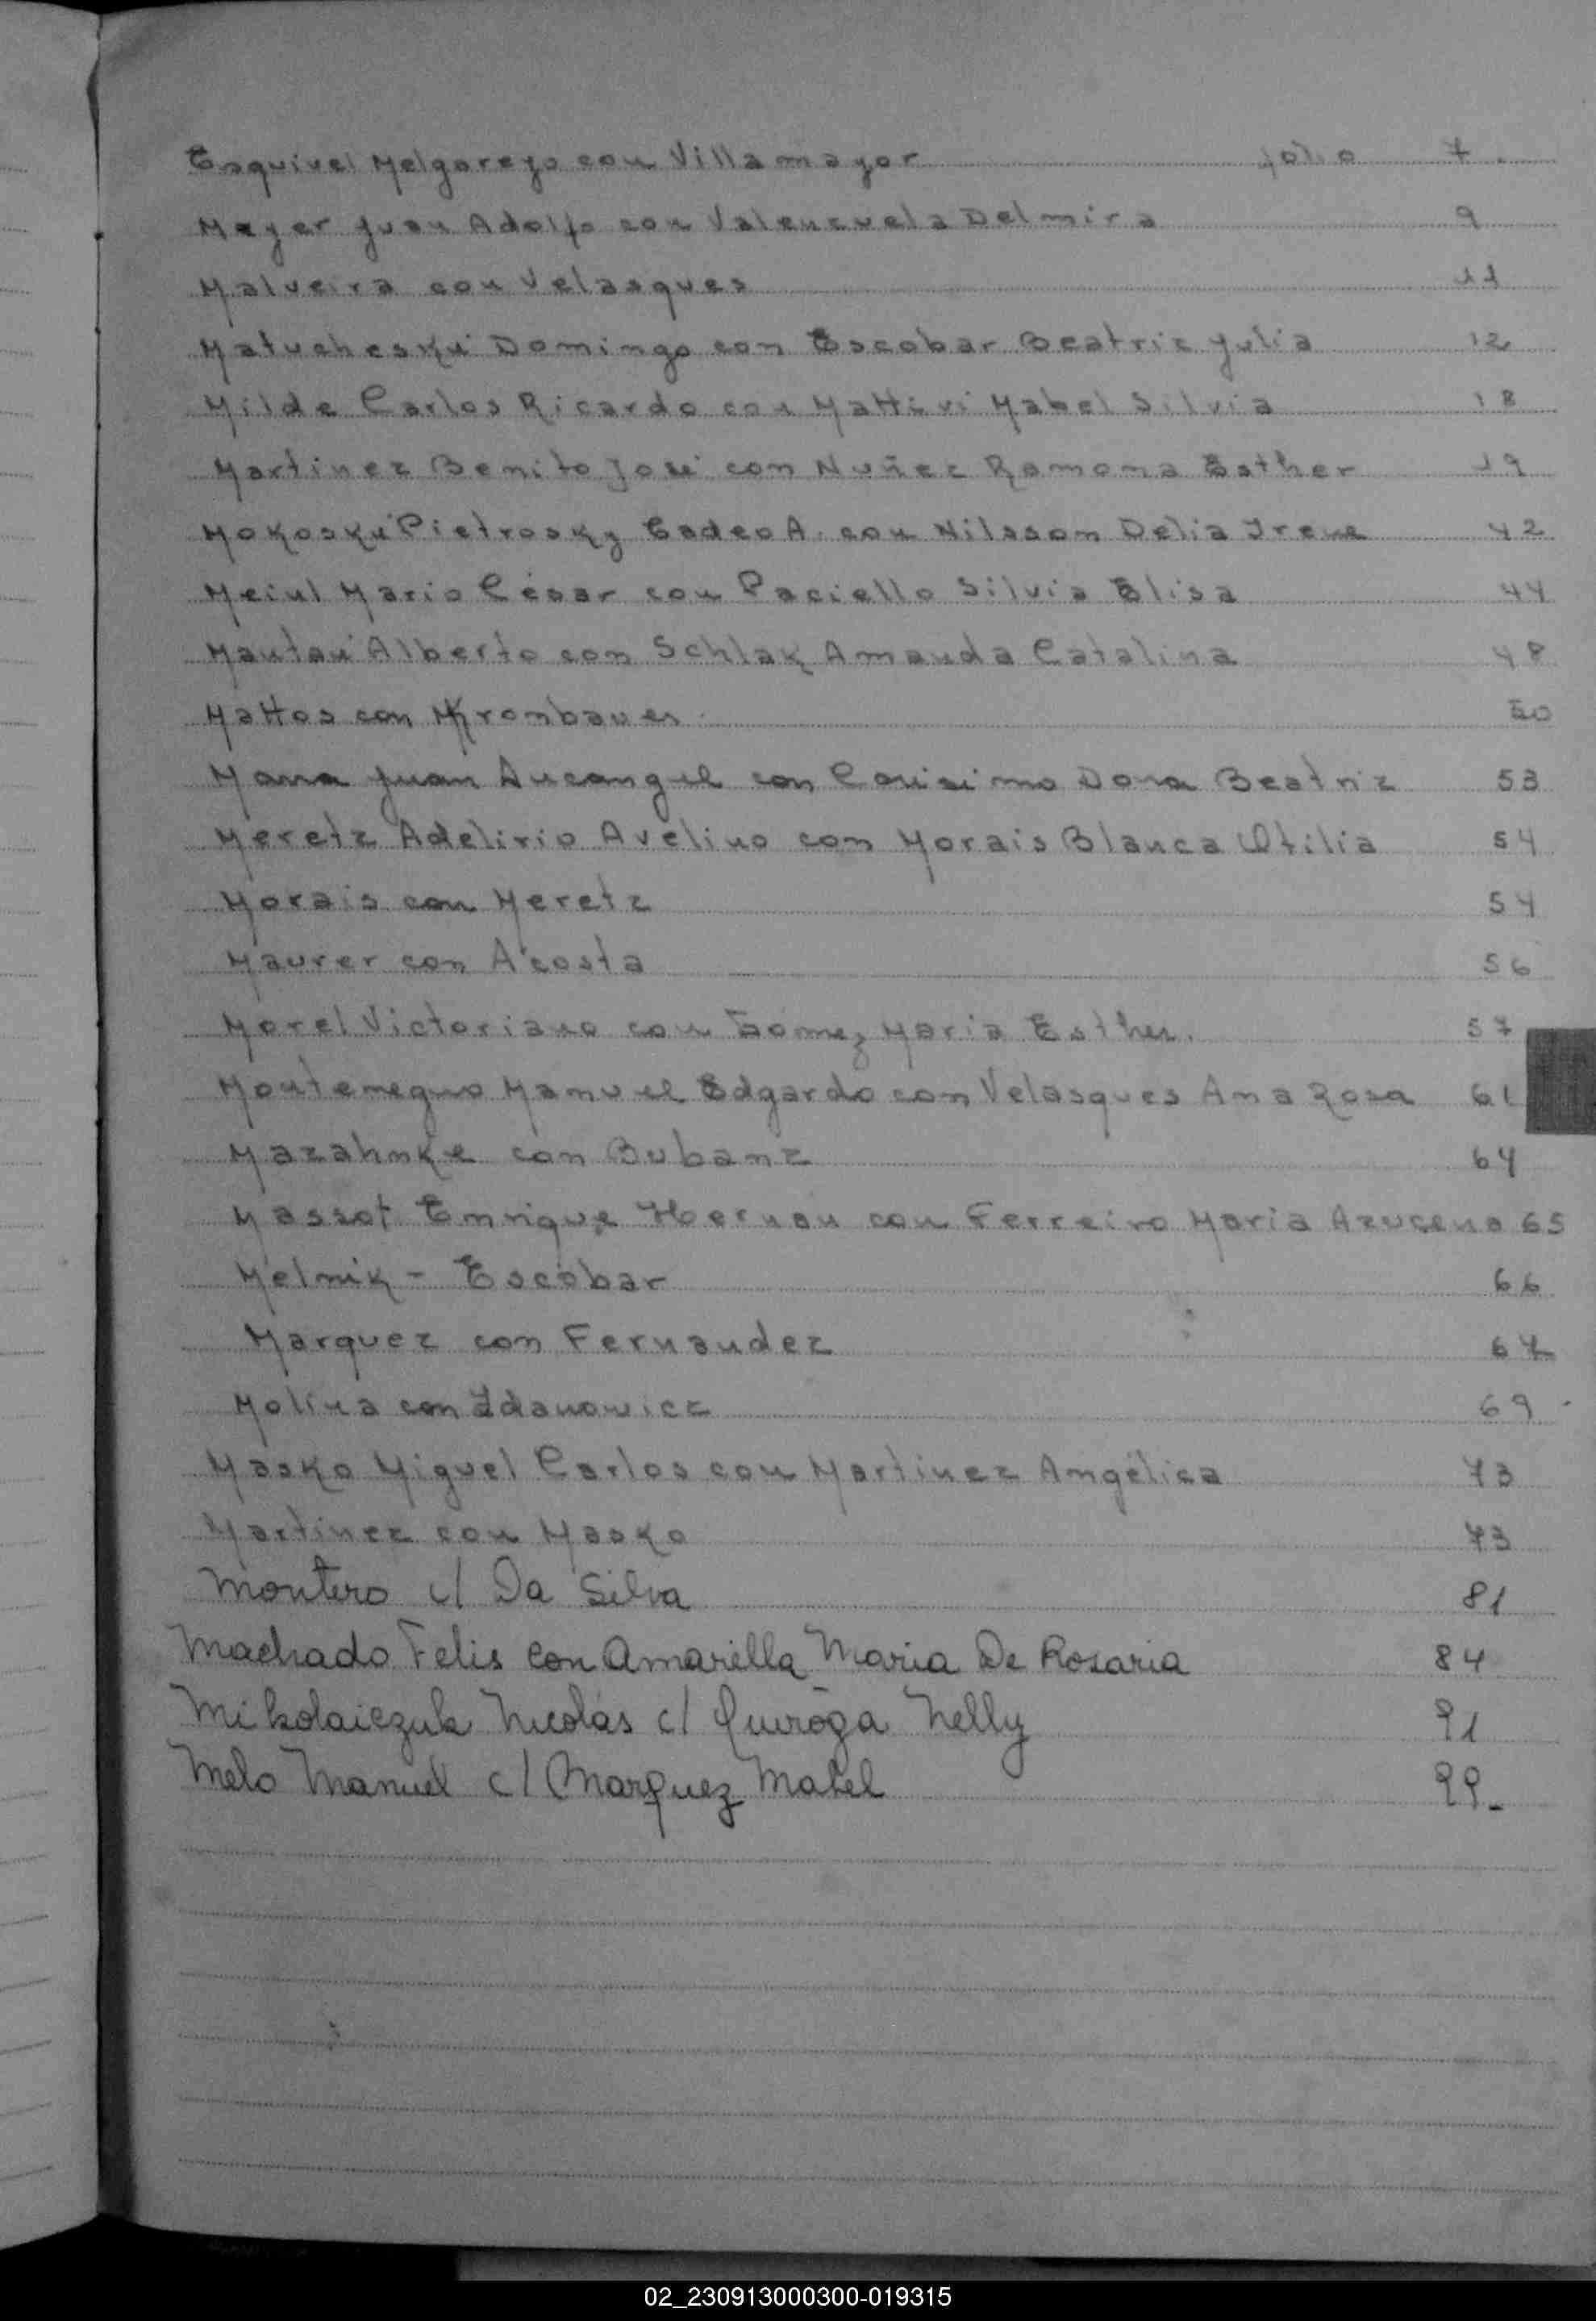 Esquivel Melgarejo con Villamayor folio 7.
Meyer Juan Adolfo con Valenzuela Delmira 9
Malveira con Velasques 11
Matucheski Domingo con Escobar Beatriz Julia 12
Milde Carlos Ricardo con Mattivi Mabel Silvia 18
Martinez Benito José con Nuñez Ramona Esther 19
Mokoski Pietrosky Tadeo A. con Nilsson Delia Irene 42
Meiul Mario César con Paciello Silvia Elisa 44
Mantau Alberto con Schlak Amanda Catalina 48
Mattos con Krombauer 50
Juan Arcangel con Dora Beatriz 53
Meretz Adelirio Avelino con Morais Blanca Otilia 54
Morais con Meretz 54
Maurer con Acosta 56
Morel Victoriano con Gómez Maria Esther. 57
Montenegro Manuel Edgardo con Velasques Ana Rosa 61
Mazahnke con Bubanz 64
Massot Enrique Hernan con Ferreiro Maria Azucena 65
Melnik - Escobar 66
Marquez con Fernandez 67
Molina con Zdanowicz 69
Masko Miguel Carlos con Martinez Angélica 73
Martinez con Masko 73
Montero c/ Da Silva 81
Machado Felis con Amarilla Maria De Rosaria 84
Mikolaiczuk Nicolás c/ Quiroga Nelly 91
Melo Manuel c/ Marquez Mabel 99-
02_230913000300-019315